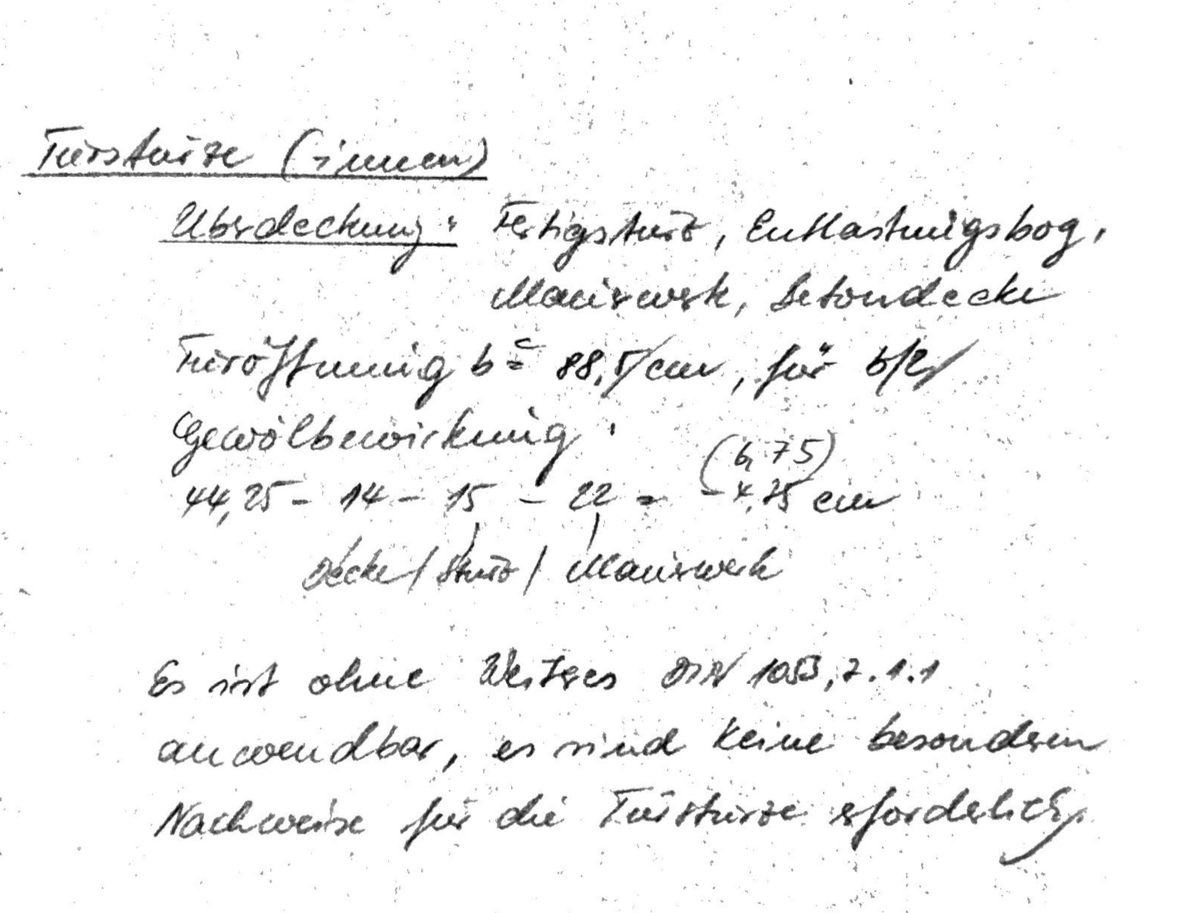 Türstürze (innen)
Überdeckung: Fertigsturz, Entlastungsbog.
Mauerwerk, Betondecke
Türöffnung b = 88,5/cm, für b/2
Gewölbewirkung:
(6,75)
44,25 - 14 - 15 - 22 = -4,75 cm
Decke/ Sturz/ Mauerwerk
Es ist ohne Weiteres DIN 1053, 7.1.1
anwendbar, es sind keine besonderen
Nachweise für die Türstürze erforderlich.